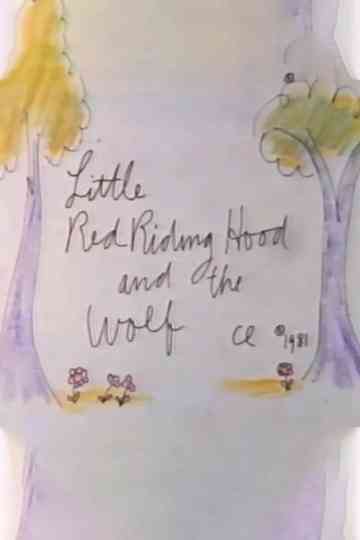 Little
Red Riding Hood
and the
Wolf
ce ©1981